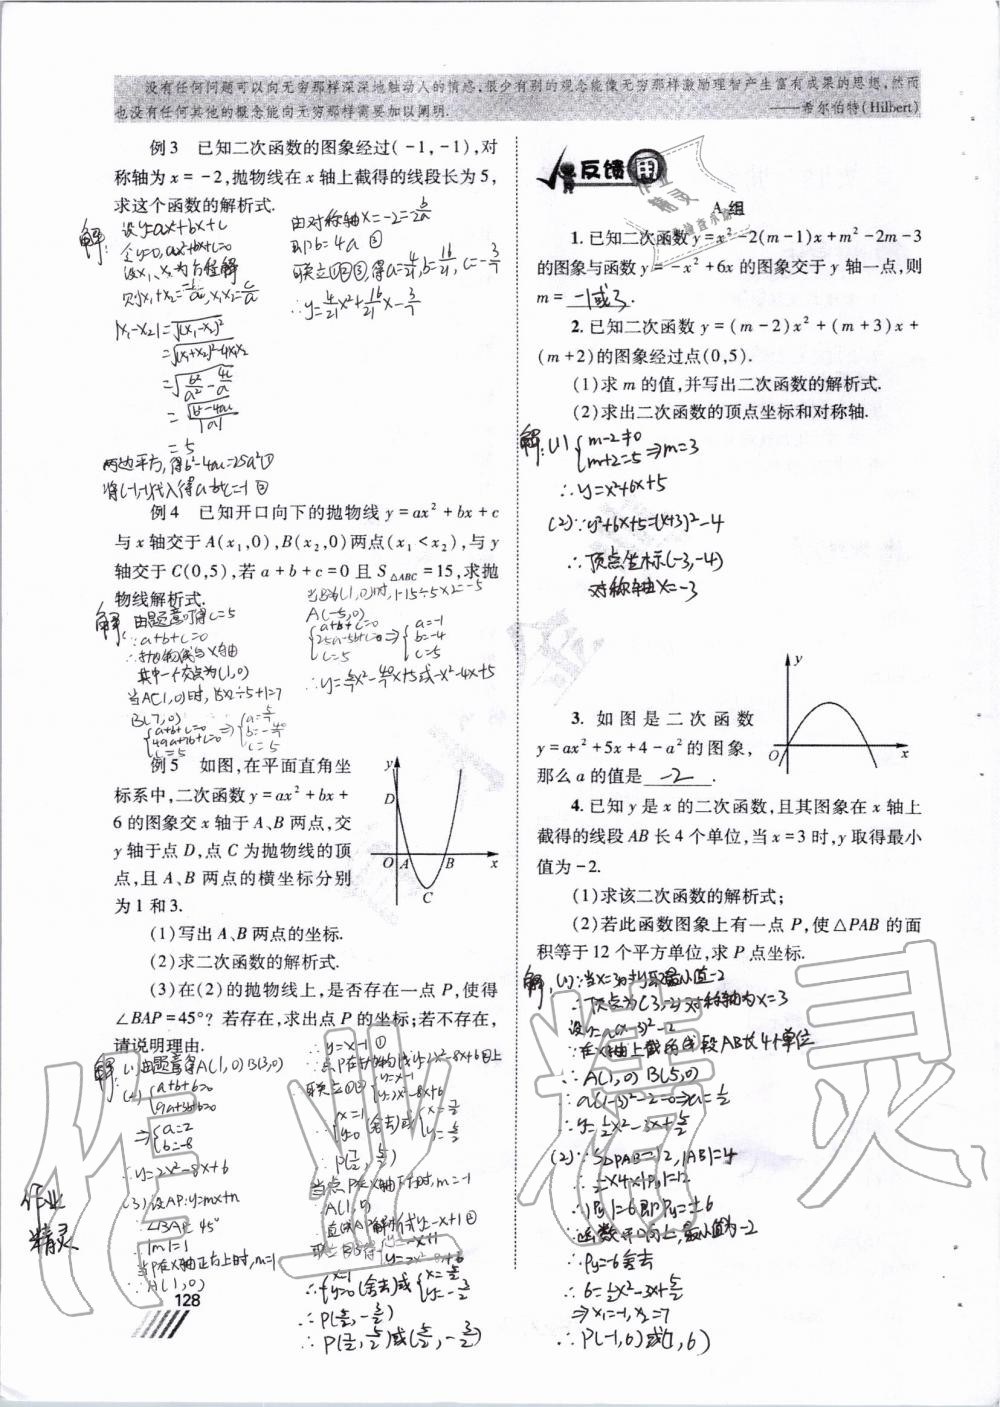 没有任何问题可以向无穷那样深深地触动人的情感,很少有别的观念能像无穷那样激励理智产生富有成果的思想,然而
也没有任何其他的概念能向无穷那样需要加以阐明.
——希尔伯特(Hilbert)
例3 已知二次函数的图象经过(-1,-1),对
称轴为x=-2,抛物线在x轴上截得的线段长为5,
求这个函数的解析式.
解:
设y=ax²+bx+c
令y=0,ax²+bx+c=0
设x₁、x₂为方程解
则x₁+x₂=-b/a,x₁x₂=c/a
|x₁-x₂|=√(x₁-x₂)²
=√(x₁+x₂)²-4x₁x₂
=√b²/a²-4c/a
=√b²-4ac/|a|
=5
两边平方,得b²-4ac=25a²①
将(-1,-1)代入得a-b+c=-1②
由对称轴x=-2=-b/2a
即b=4a ③
联立①②③,得a=4/21,b=16/21,c=-3/7
∴y=4/21x²+16/21x-3/7
例4 已知开口向下的抛物线y=ax²+bx+c
与x轴交于A(x₁,0),B(x₂,0)两点(x₁<x₂),与y
轴交于C(0,5),若a+b+c=0且S△ABC=15,求抛
物线解析式.
解:
由题意可得c=5
∵a+b+c=0
∴抛物线与x轴
其中一个交点为(1,0)
当A(1,0)时,15×2÷5+1=7
B(7,0)
{a+b+c=0
49a+7b+c=0
c=5
⇒{a=5/7
b=-40/7
c=5
当B为(1,0)时,1-15÷5×2=-5
A(-5,0)
{a+b+c=0
25a-5b+c=0
c=5
⇒{a=-1
b=-4
c=5
∴y=5/7x²-40/7x+5或-x²-4x+5
例5 如图,在平面直角坐
标系中,二次函数y=ax²+bx+
6的图象交x轴于A、B两点,交
y轴于点D,点C为抛物线的顶
点,且A、B两点的横坐标分别
为1和3.
y
D
O A B x
C
(1)写出A、B两点的坐标.
(2)求二次函数的解析式.
(3)在(2)的抛物线上,是否存在一点P,使得
∠BAP=45°?若存在,求出点P的坐标;若不存在,
请说明理由.
解:
(1)由题意得A(1,0)B(3,0)
(2){a+b+6=0
9a+3b+6=0
⇒{a=2
b=-8
∴y=2x²-8x+6
(3)设AP:y=mx+n
∵∠BAP=45°
∴|m|=1
当P在x轴正右上时,m=1
∴A(1,0)
∴y=x-1 ①
∴点P在抛物线y=2x²-8x+6②上
联立①②{y=x-1
y=2x²-8x+6
{x=1
y=0(舍去)或{x=7/2
y=5/2
∴P(7/2,5/2)
当点P在x轴下方时,m=-1
∴A(1,0)
∴直线AP解析式y=-x+1③
联立②③得{y=-x+1
y=2x²-8x+6
∴{x=1
y=0(舍去)或{x=5/2
y=-3/2
∴P(5/2,-3/2)
∴P(7/2,5/2)或(5/2,-3/2)
作业
精灵
128
反馈用
A组
1.已知二次函数y=x²-2(m-1)x+m²-2m-3
的图象与函数y=-x²+6x的图象交于y轴一点,则
m=-1或3.
2.已知二次函数y=(m-2)x²+(m+3)x+
(m+2)的图象经过点(0,5).
(1)求m的值,并写出二次函数的解析式.
(2)求出二次函数的顶点坐标和对称轴.
解:(1){m-2≠0
m+2=5⇒m=3
∴y=x²+6x+5
(2)∵y=x²+6x+5=(x+3)²-4
∴顶点坐标(-3,-4)
对称轴x=-3
y
O x
3.如图是二次函数
y=ax²+5x+4-a²的图象,
那么a的值是 -2 .
4.已知y是x的二次函数,且其图象在x轴上
截得的线段AB长4个单位,当x=3时,y取得最小
值为-2.
(1)求该二次函数的解析式;
(2)若此函数图象上有一点P,使△PAB的面
积等于12个平方单位,求P点坐标.
解:(1)∵当x=3时y取最小值-2
∴顶点为(3,-2)对称轴为x=3
设y=a(x-3)²-2
∵在x轴上截的线段AB长4个单位
∴A(1,0)B(5,0)
∴a(1-3)²-2=0⇒a=1/2
∴y=1/2x²-3x+5/2
(2)∵S△PAB=12,|AB|=4
∴1/2×4×|Py|=12
∴|Py|=6即Py=±6
∵函数开口向上,最小值为-2
∴Py=-6舍去
∴6=1/2x²-3x+5/2
⇒x₁=-1,x₂=7
∴P(-1,6)或(7,6)
作业精灵